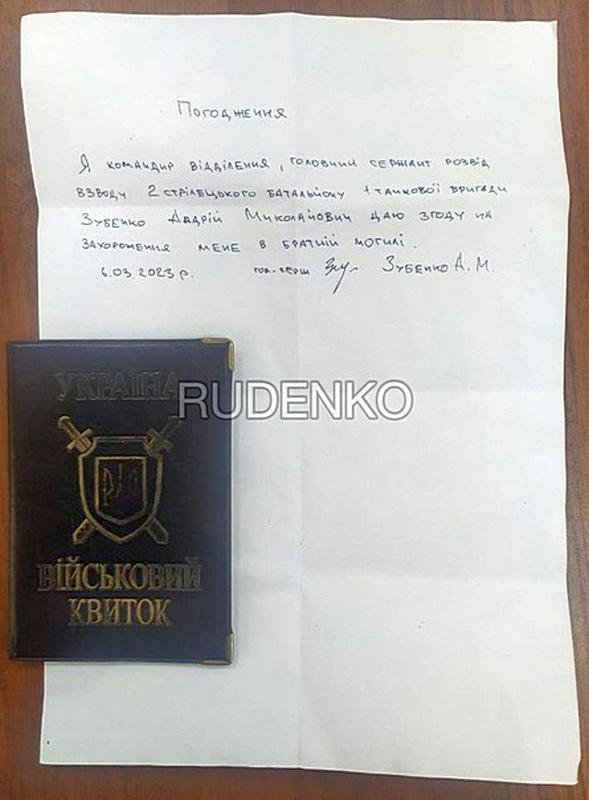 Погодження
Я командир відділення, головний сержант розвід
взводу 2 стрілецького батальйону 1 танкової бригади
Зубенко Андрій Миколайович даю згоду на
захороження мене в братній могилі.
6.03.2023 р. гол. серж Зубенко А. М.
УКРАЇНА
RUDENKO
ВІЙСЬКОВИЙ
КВИТОК